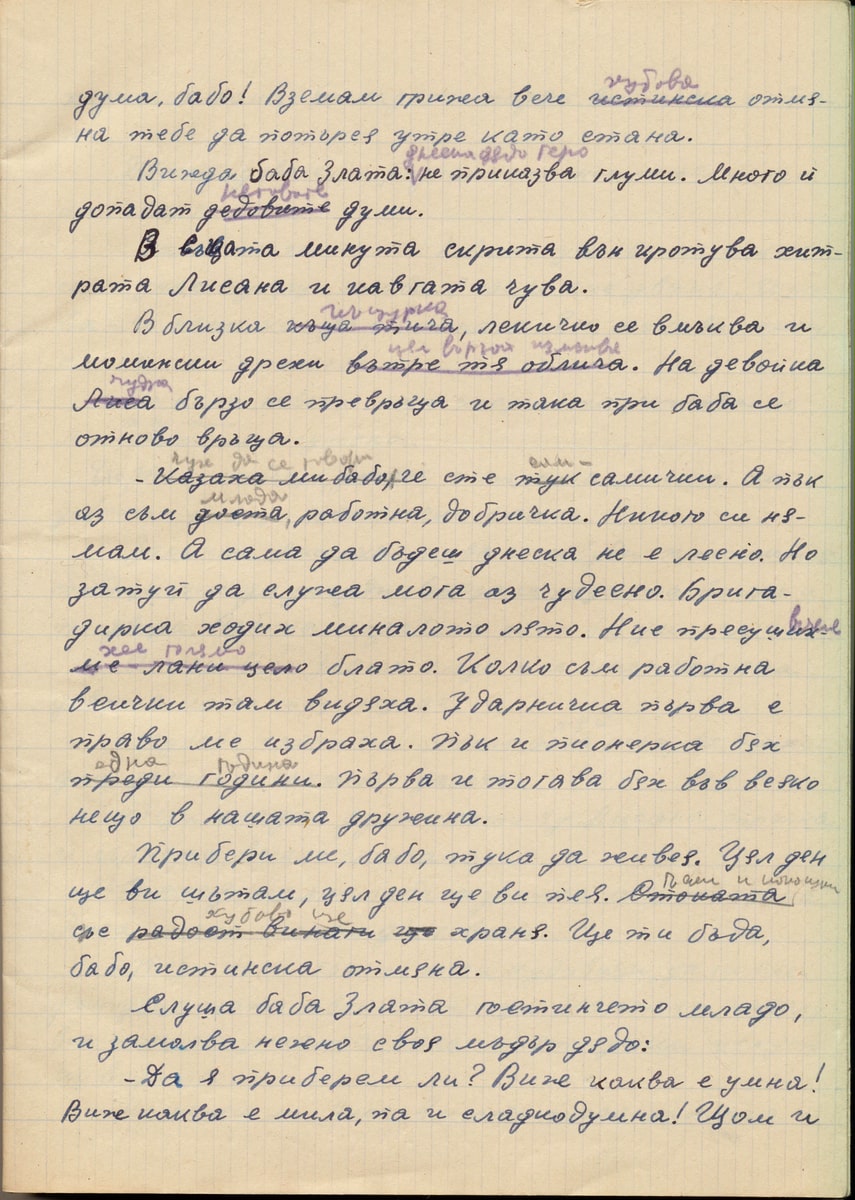 хубова
дума, бабо! Вземам грижа вече истинска отмя-
на тебе да потърся утре като стана.
днеска дядо Геро
Вижда баба Злата: не приказва глуми. Много и
неговите
допадат дедовите думи.
В същата минута скрита вън кротува хит-
рата Лисана и навгата чува.
къщурка
В близка къща тича, лекичко се вмъква и
цел вързоп измъква
момински дрехи вътре тя облича. На девойка
чудна
Лиса бързо се превръща и така при баба се
отново връща.
чух да се говори сам-
- Казаха ми бабо, че сте тук самички. А пък
млада
аз съм доста, работна, добричка. Никого си ня-
мам. А сама да бъдеш днеска не е лесно. Но
затуй да служа мога аз чудесно. Брига-
дирка ходих миналото лято. Ние пресуших-
хме голямо
ме лани цело блато. Колко съм работна
всички там видяха. Ударничка първа е
право ме избраха. Пък и пионерка бях
една година
преди години. Първа и тогава бях във всяко
нещо в нашата дружина.
Прибери ме, бабо, тука да живея. Цял ден
ще ви шътам, цял ден ще ви пея. Стоката
хубово ще
със радост винаги ще храня. Ще ти бъда,
бабо, истинска отмяна.
Слуша баба Злата гостинчето младо,
и замолва нежно своя мъдър дядо:
- Да я приберем ли? Виж каква е умна!
Виж каква е мила, па и сладкодумна! Щом и